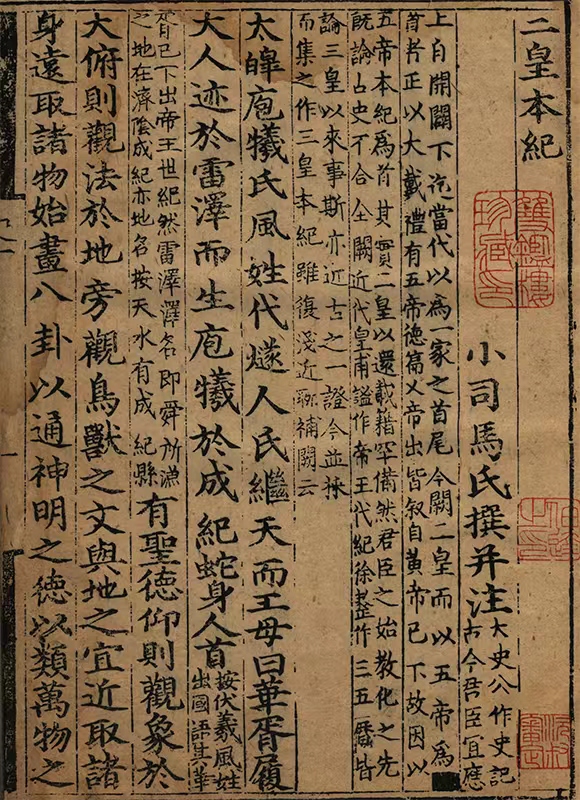 二皇本紀
小司馬氏撰并注
大史公作史記
古今君臣宜應
上自開闢下迄當代以爲一家之首尾今闕二皇而以五帝爲
首者正以大戴禮有五帝德篇又帝出皆叙自黃帝已下故因以
五帝本紀爲首其實二皇以還載籍罕備然君臣之始教化之先
既論古史不合全闕近代皇甫謐作帝王代紀徐整作三五曆皆
論三皇以來事斯亦近古之一證今並採
而集之作三皇本紀雖復淺近聊補闕云
太皞庖犧氏風姓代燧人氏繼天而王母曰華胥履
大人迹於雷澤而生庖犧於成紀蛇身人首
按伏羲風姓
出國語其華
胥已下出帝王世紀然雷澤澤名即舜所漁
之地在濟陰成紀亦地名按天水有成紀縣
有聖德仰則觀象於
大俯則觀法於地旁觀鳥獸之文與地之宜近取諸
身遠取諸物始畫八卦以通神明之德以類萬物之
雙鑑樓
珍藏印
沅叔
審定